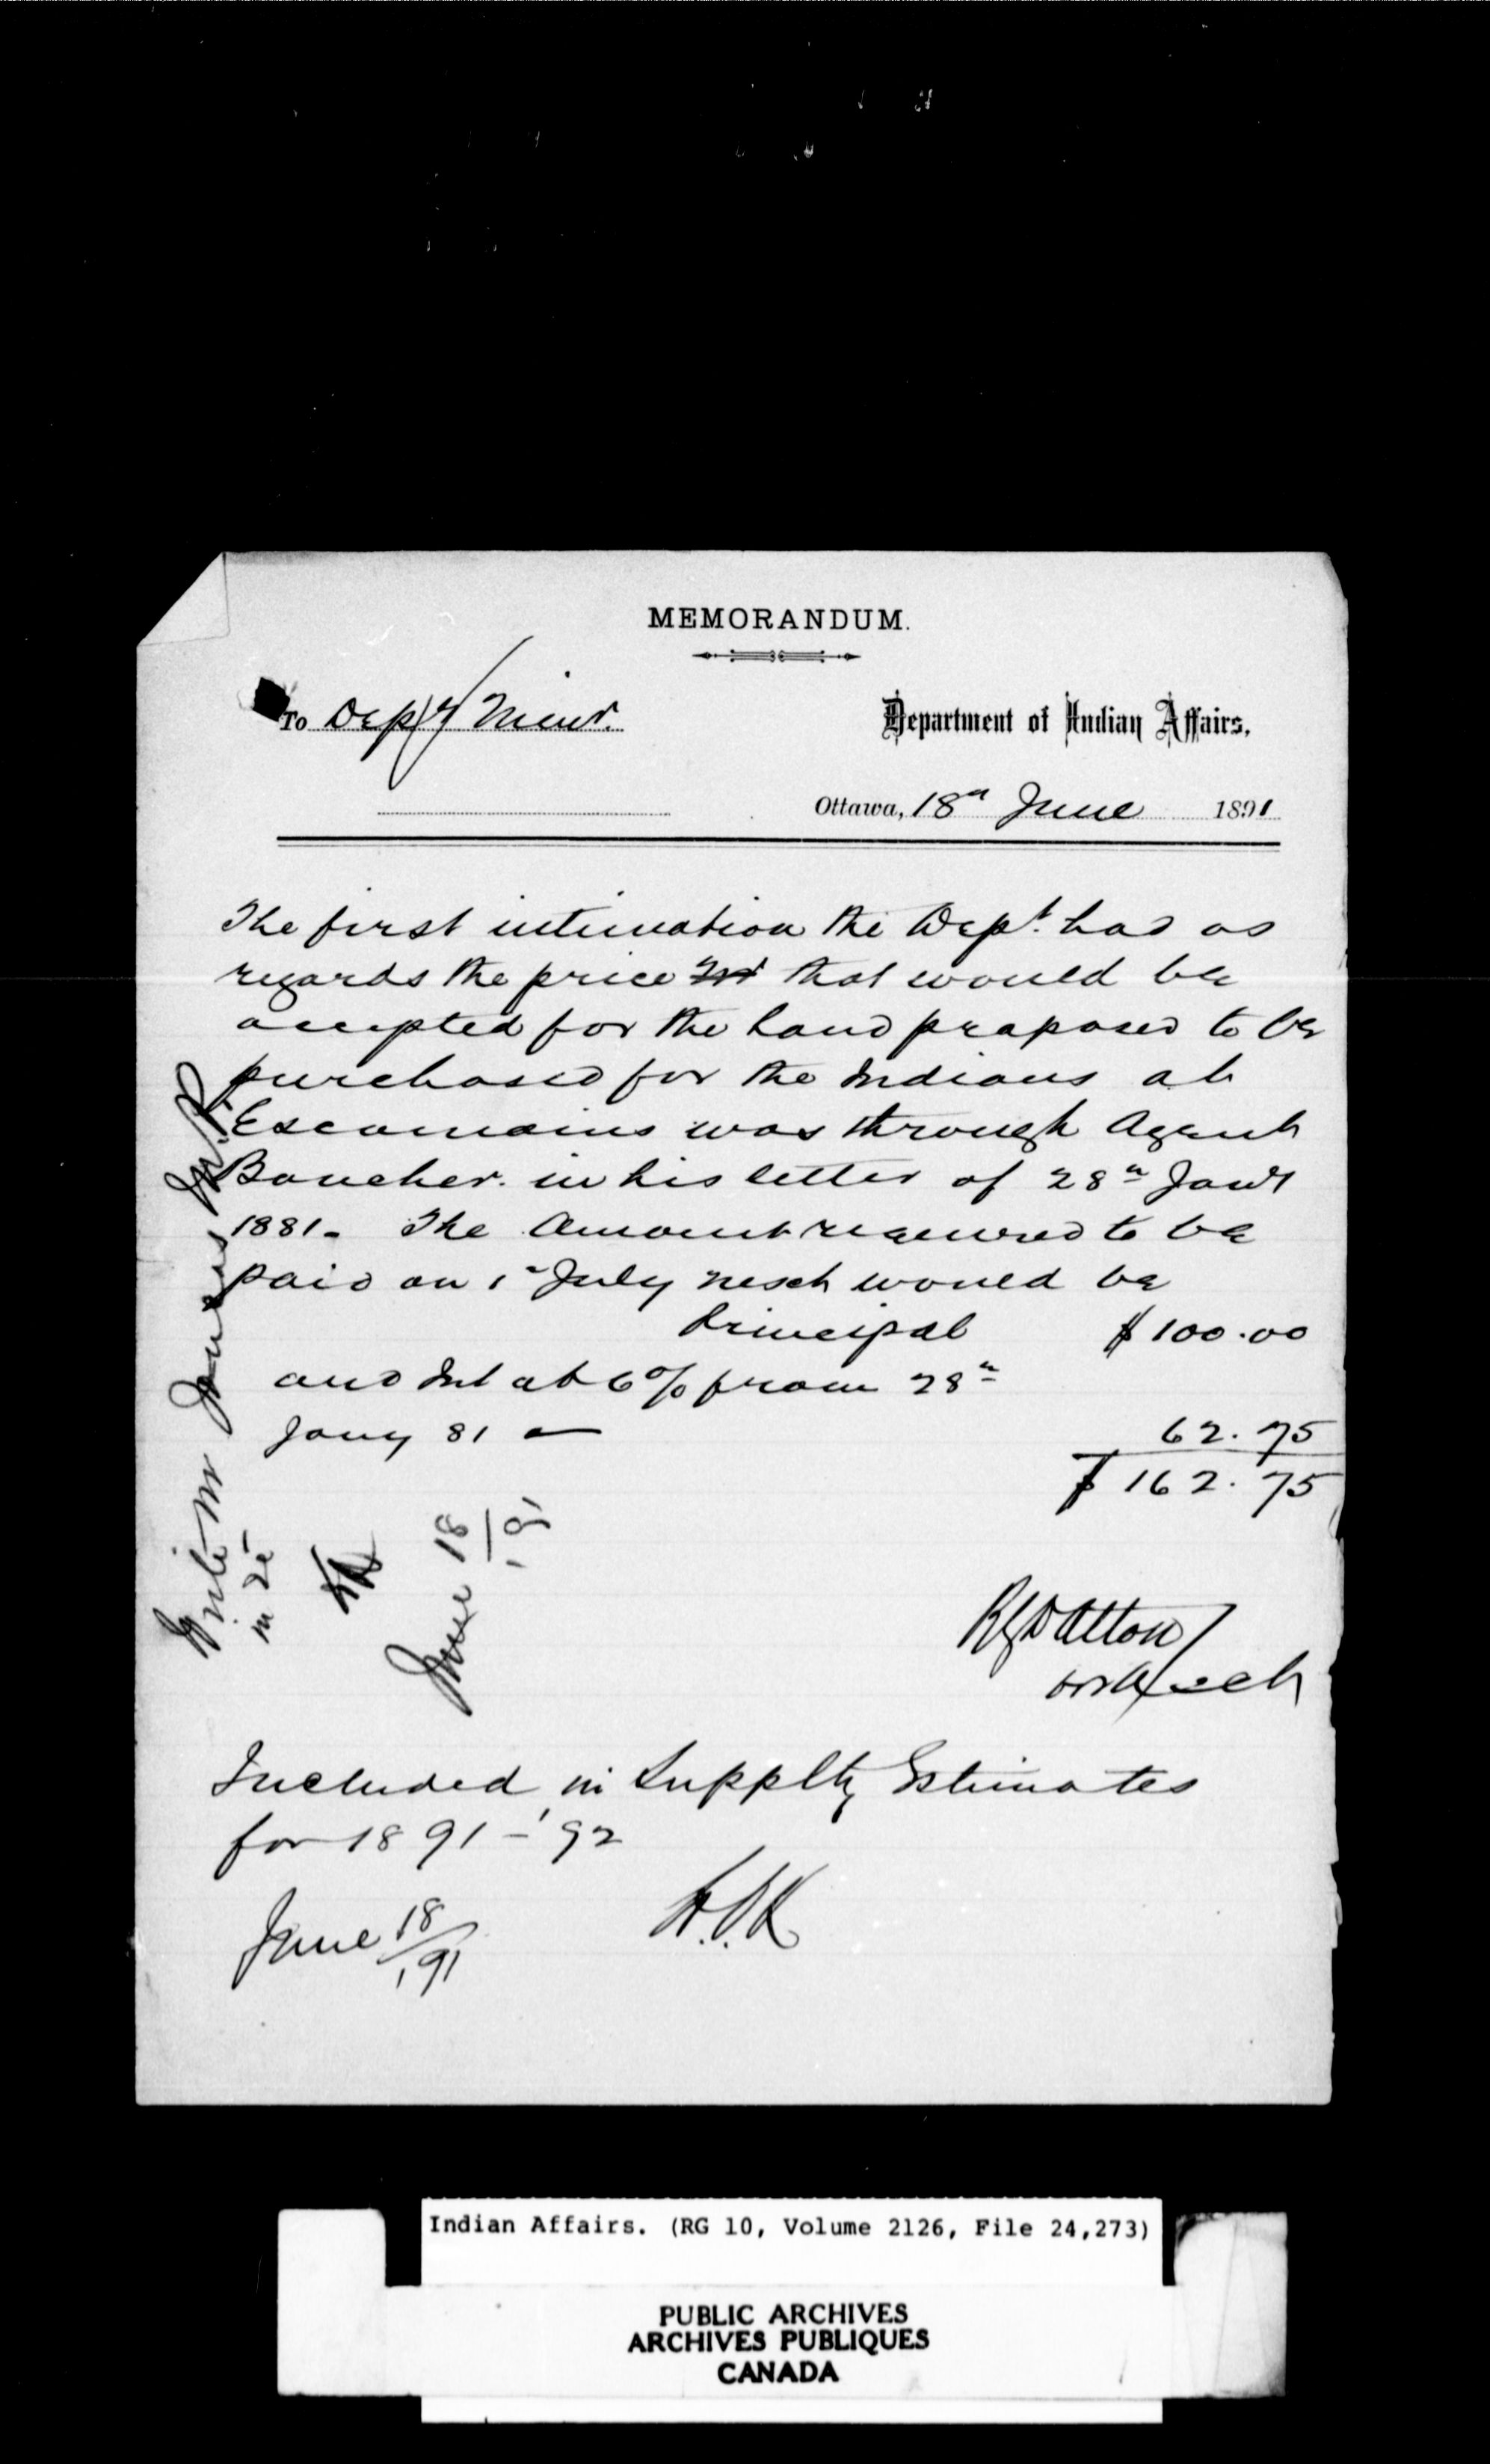 MEMORANDUM.
To Depy Minr.
Department of Indian Affairs,
Ottawa, 18th June 1891
The first intimation the Dept. had as
regards the price that would be
accepted for the land proposed to be
purchased for the Indians at
Escomains was through Agent
Boucher in his letter of 28th Jany
1881. The amount required to be
paid on 1st July next would be
Principal $100.00
and Int at 6% from 28th
Jany 81 — 62.75
$162.75
June 18
/91
Included in Supplty Estimates
for 1891-'92
June 18/91
Indian Affairs. (RG 10, Volume 2126, File 24,273)
PUBLIC ARCHIVES
ARCHIVES PUBLIQUES
CANADA